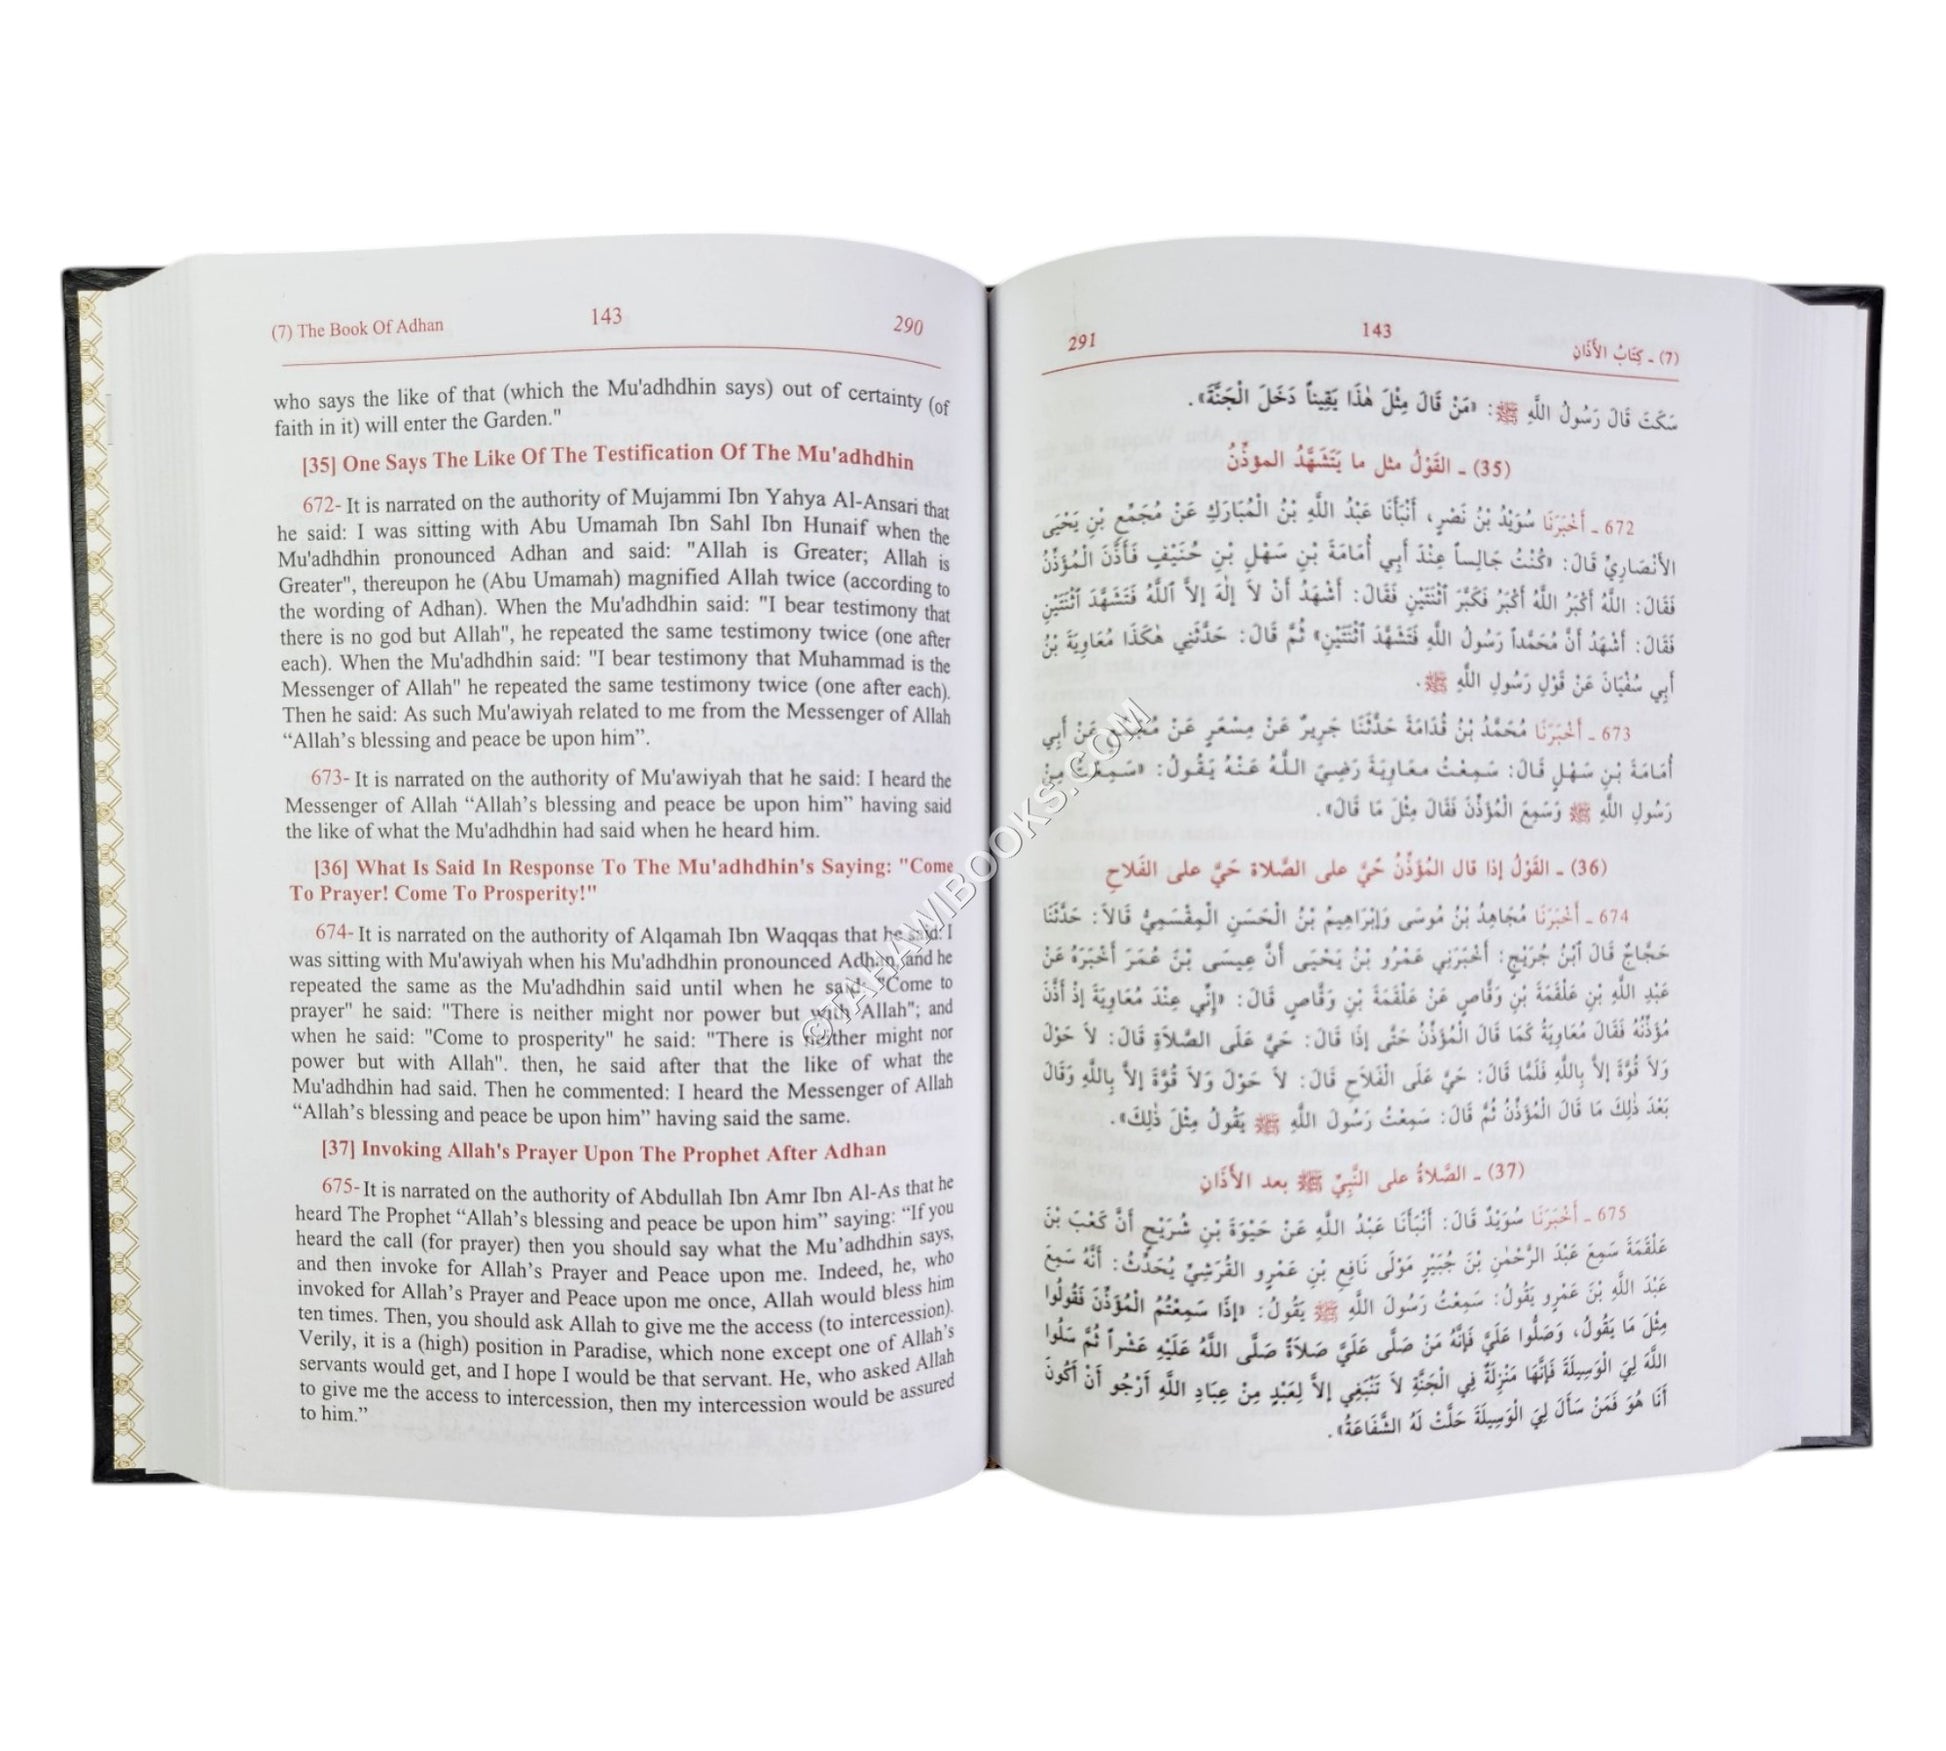 (7) The Book Of Adhan 143 290
who says the like of that (which the Mu'adhdhin says) out of certainty (of
faith in it) will enter the Garden."
[35] One Says The Like Of The Testification Of The Mu'adhdhin
672- It is narrated on the authority of Mujammi Ibn Yahya Al-Ansari that
he said: I was sitting with Abu Umamah Ibn Sahl Ibn Hunaif when the
Mu'adhdhin pronounced Adhan and said: "Allah is Greater; Allah is
Greater", thereupon he (Abu Umamah) magnified Allah twice (according to
the wording of Adhan). When the Mu'adhdhin said: "I bear testimony that
there is no god but Allah", he repeated the same testimony twice (one after
each). When the Mu'adhdhin said: "I bear testimony that Muhammad is the
Messenger of Allah" he repeated the same testimony twice (one after each).
Then he said: As such Mu'awiyah related to me from the Messenger of Allah
“Allah’s blessing and peace be upon him”.
673- It is narrated on the authority of Mu'awiyah that he said: I heard the
Messenger of Allah “Allah’s blessing and peace be upon him” having said
the like of what the Mu'adhdhin had said when he heard him.
[36] What Is Said In Response To The Mu'adhdhin's Saying: "Come
To Prayer! Come To Prosperity!"
674- It is narrated on the authority of Alqamah Ibn Waqqas that he said: I
was sitting with Mu'awiyah when his Mu'adhdhin pronounced Adhan, and he
repeated the same as the Mu'adhdhin said until when he said: "Come to
prayer" he said: "There is neither might nor power but with Allah"; and
when he said: "Come to prosperity" he said: "There is neither might nor
power but with Allah". then, he said after that the like of what the
Mu'adhdhin had said. Then he commented: I heard the Messenger of Allah
“Allah’s blessing and peace be upon him” having said the same.
[37] Invoking Allah's Prayer Upon The Prophet After Adhan
675- It is narrated on the authority of Abdullah Ibn Amr Ibn Al-As that he
heard The Prophet “Allah’s blessing and peace be upon him” saying: “If you
heard the call (for prayer) then you should say what the Mu’adhdhin says,
and then invoke for Allah’s Prayer and Peace upon me. Indeed, he, who
invoked for Allah’s Prayer and Peace upon me once, Allah would bless him
ten times. Then, you should ask Allah to give me the access (to intercession).
Verily, it is a (high) position in Paradise, which none except one of Allah’s
servants would get, and I hope I would be that servant. He, who asked Allah
to give me the access to intercession, then my intercession would be assured
to him.”
(7) ـ كِتَابُ الأَذَانِ 143 291
سَكَتَ قَالَ رَسُولُ اللَّهِ ﷺ: «مَنْ قَالَ مِثْلَ هٰذَا يَقِيناً دَخَلَ الْجَنَّةَ».
(35) ـ القَوْلُ مثل ما يَتَشَهَّدُ المؤذِّنُ
672 ـ أَخْبَرَنَا سُوَيْدُ بْنُ نَصْرٍ، أَنْبَأَنَا عَبْدُ اللَّهِ بْنُ الْمُبَارَكِ عَنْ مُجَمِّعِ بْنِ يَحْيَى
الأَنْصَارِيِّ قَالَ: «كُنْتُ جَالِساً عِنْدَ أَبِي أُمَامَةَ بْنِ سَهْلِ بْنِ حُنَيْفٍ فَأَذَّنَ الْمُؤَذِّنُ
فَقَالَ: اللَّهُ أَكْبَرُ اللَّهُ أَكْبَرُ فَكَبَّرَ اثْنَتَيْنِ فَقَالَ: أَشْهَدُ أَنْ لاَ إِلٰهَ إِلاَّ ٱللَّهُ فَتَشَهَّدَ ٱثْنَتَيْنِ
فَقَالَ: أَشْهَدُ أَنَّ مُحَمَّداً رَسُولُ اللَّهِ فَتَشَهَّدَ ٱثْنَتَيْنِ» ثُمَّ قَالَ: حَدَّثَنِي هٰكَذَا مُعَاوِيَةُ بْنُ
أَبِي سُفْيَانَ عَنْ قَوْلِ رَسُولِ اللَّهِ ﷺ.
673 ـ أَخْبَرَنَا مُحَمَّدُ بْنُ قُدَامَةَ حَدَّثَنَا جَرِيرٌ عَنْ مِسْعَرٍ عَنْ مُجَمِّعٍ عَنْ أَبِي
أُمَامَةَ بْنِ سَهْلٍ قَالَ: سَمِعْتُ معَاوِيَةَ رَضِيَ اللَّهُ عَنْهُ يَقُولُ: «سَمِعْتُ مِنْ
رَسُولِ اللَّهِ ﷺ وَسَمِعَ الْمُؤَذِّنَ فَقَالَ مِثْلَ مَا قَالَ».
(36) ـ القَوْلُ إذا قال المُؤَذِّنُ حَيَّ على الصَّلاة حَيَّ على الفَلاحِ
674 ـ أَخْبَرَنَا مُجَاهِدُ بْنُ مُوسَى وَإِبْرَاهِيمُ بْنُ الْحَسَنِ الْمِقْسَمِيُّ قَالاَ: حَدَّثَنَا
حَجَّاجٌ قَالَ ٱبْنُ جُرَيْجٍ: أَخْبَرَنِي عَمْرُو بْنُ يَحْيَى أَنَّ عِيسَى بْنَ عُمَرَ أَخْبَرَهُ عَنْ
عَبْدِ اللَّهِ بْنِ عَلْقَمَةَ بْنِ وَقَّاصٍ عَنْ عَلْقَمَةَ بْنِ وَقَّاصٍ قَالَ: «إِنِّي عِنْدَ مُعَاوِيَةَ إِذْ أَذَّنَ
مُؤَذِّنُهُ فَقَالَ مُعَاوِيَةُ كَمَا قَالَ الْمُؤَذِّنُ حَتَّى إِذَا قَالَ: حَيَّ عَلَى الصَّلاَةِ قَالَ: لاَ حَوْلَ
وَلاَ قُوَّةَ إِلاَّ بِاللَّهِ فَلَمَّا قَالَ: حَيَّ عَلَى الْفَلاَحِ قَالَ: لاَ حَوْلَ وَلاَ قُوَّةَ إِلاَّ بِاللَّهِ وَقَالَ
بَعْدَ ذٰلِكَ مَا قَالَ الْمُؤَذِّنُ ثُمَّ قَالَ: سَمِعْتُ رَسُولَ اللَّهِ ﷺ يَقُولُ مِثْلَ ذٰلِكَ».
(37) ـ الصَّلاةُ على النَّبِيِّ ﷺ بعد الأَذَانِ
675 ـ أَخْبَرَنَا سُوَيْدٌ قَالَ: أَنْبَأَنَا عَبْدُ اللَّهِ عَنْ حَيْوَةَ بْنِ شُرَيْحٍ أَنَّ كَعْبَ بْنَ
عَلْقَمَةَ سَمِعَ عَبْدَ الرَّحْمٰنِ بْنَ جُبَيْرٍ مَوْلَى نَافِعِ بْنِ عَمْرٍو القُرَشِيِّ يُحَدِّثُ: أَنَّهُ سَمِعَ
عَبْدَ اللَّهِ بْنَ عَمْرٍو يَقُولُ: سَمِعْتُ رَسُولَ اللَّهِ ﷺ يَقُولُ: «إِذَا سَمِعْتُمُ الْمُؤَذِّنَ فَقُولُوا
مِثْلَ مَا يَقُولُ، وَصَلُّوا عَلَيَّ فَإِنَّهُ مَنْ صَلَّى عَلَيَّ صَلاَةً صَلَّى اللَّهُ عَلَيْهِ عَشْراً ثُمَّ سَلُوا
اللَّهَ لِيَ الْوَسِيلَةَ فَإِنَّهَا مَنْزِلَةٌ فِي الْجَنَّةِ لاَ تَنْبَغِي إِلاَّ لِعَبْدٍ مِنْ عِبَادِ اللَّهِ أَرْجُو أَنْ أَكُونَ
أَنَا هُوَ فَمَنْ سَأَلَ لِيَ الْوَسِيلَةَ حَلَّتْ لَهُ الشَّفَاعَةُ».
©TAHAWIBOOKS.COM